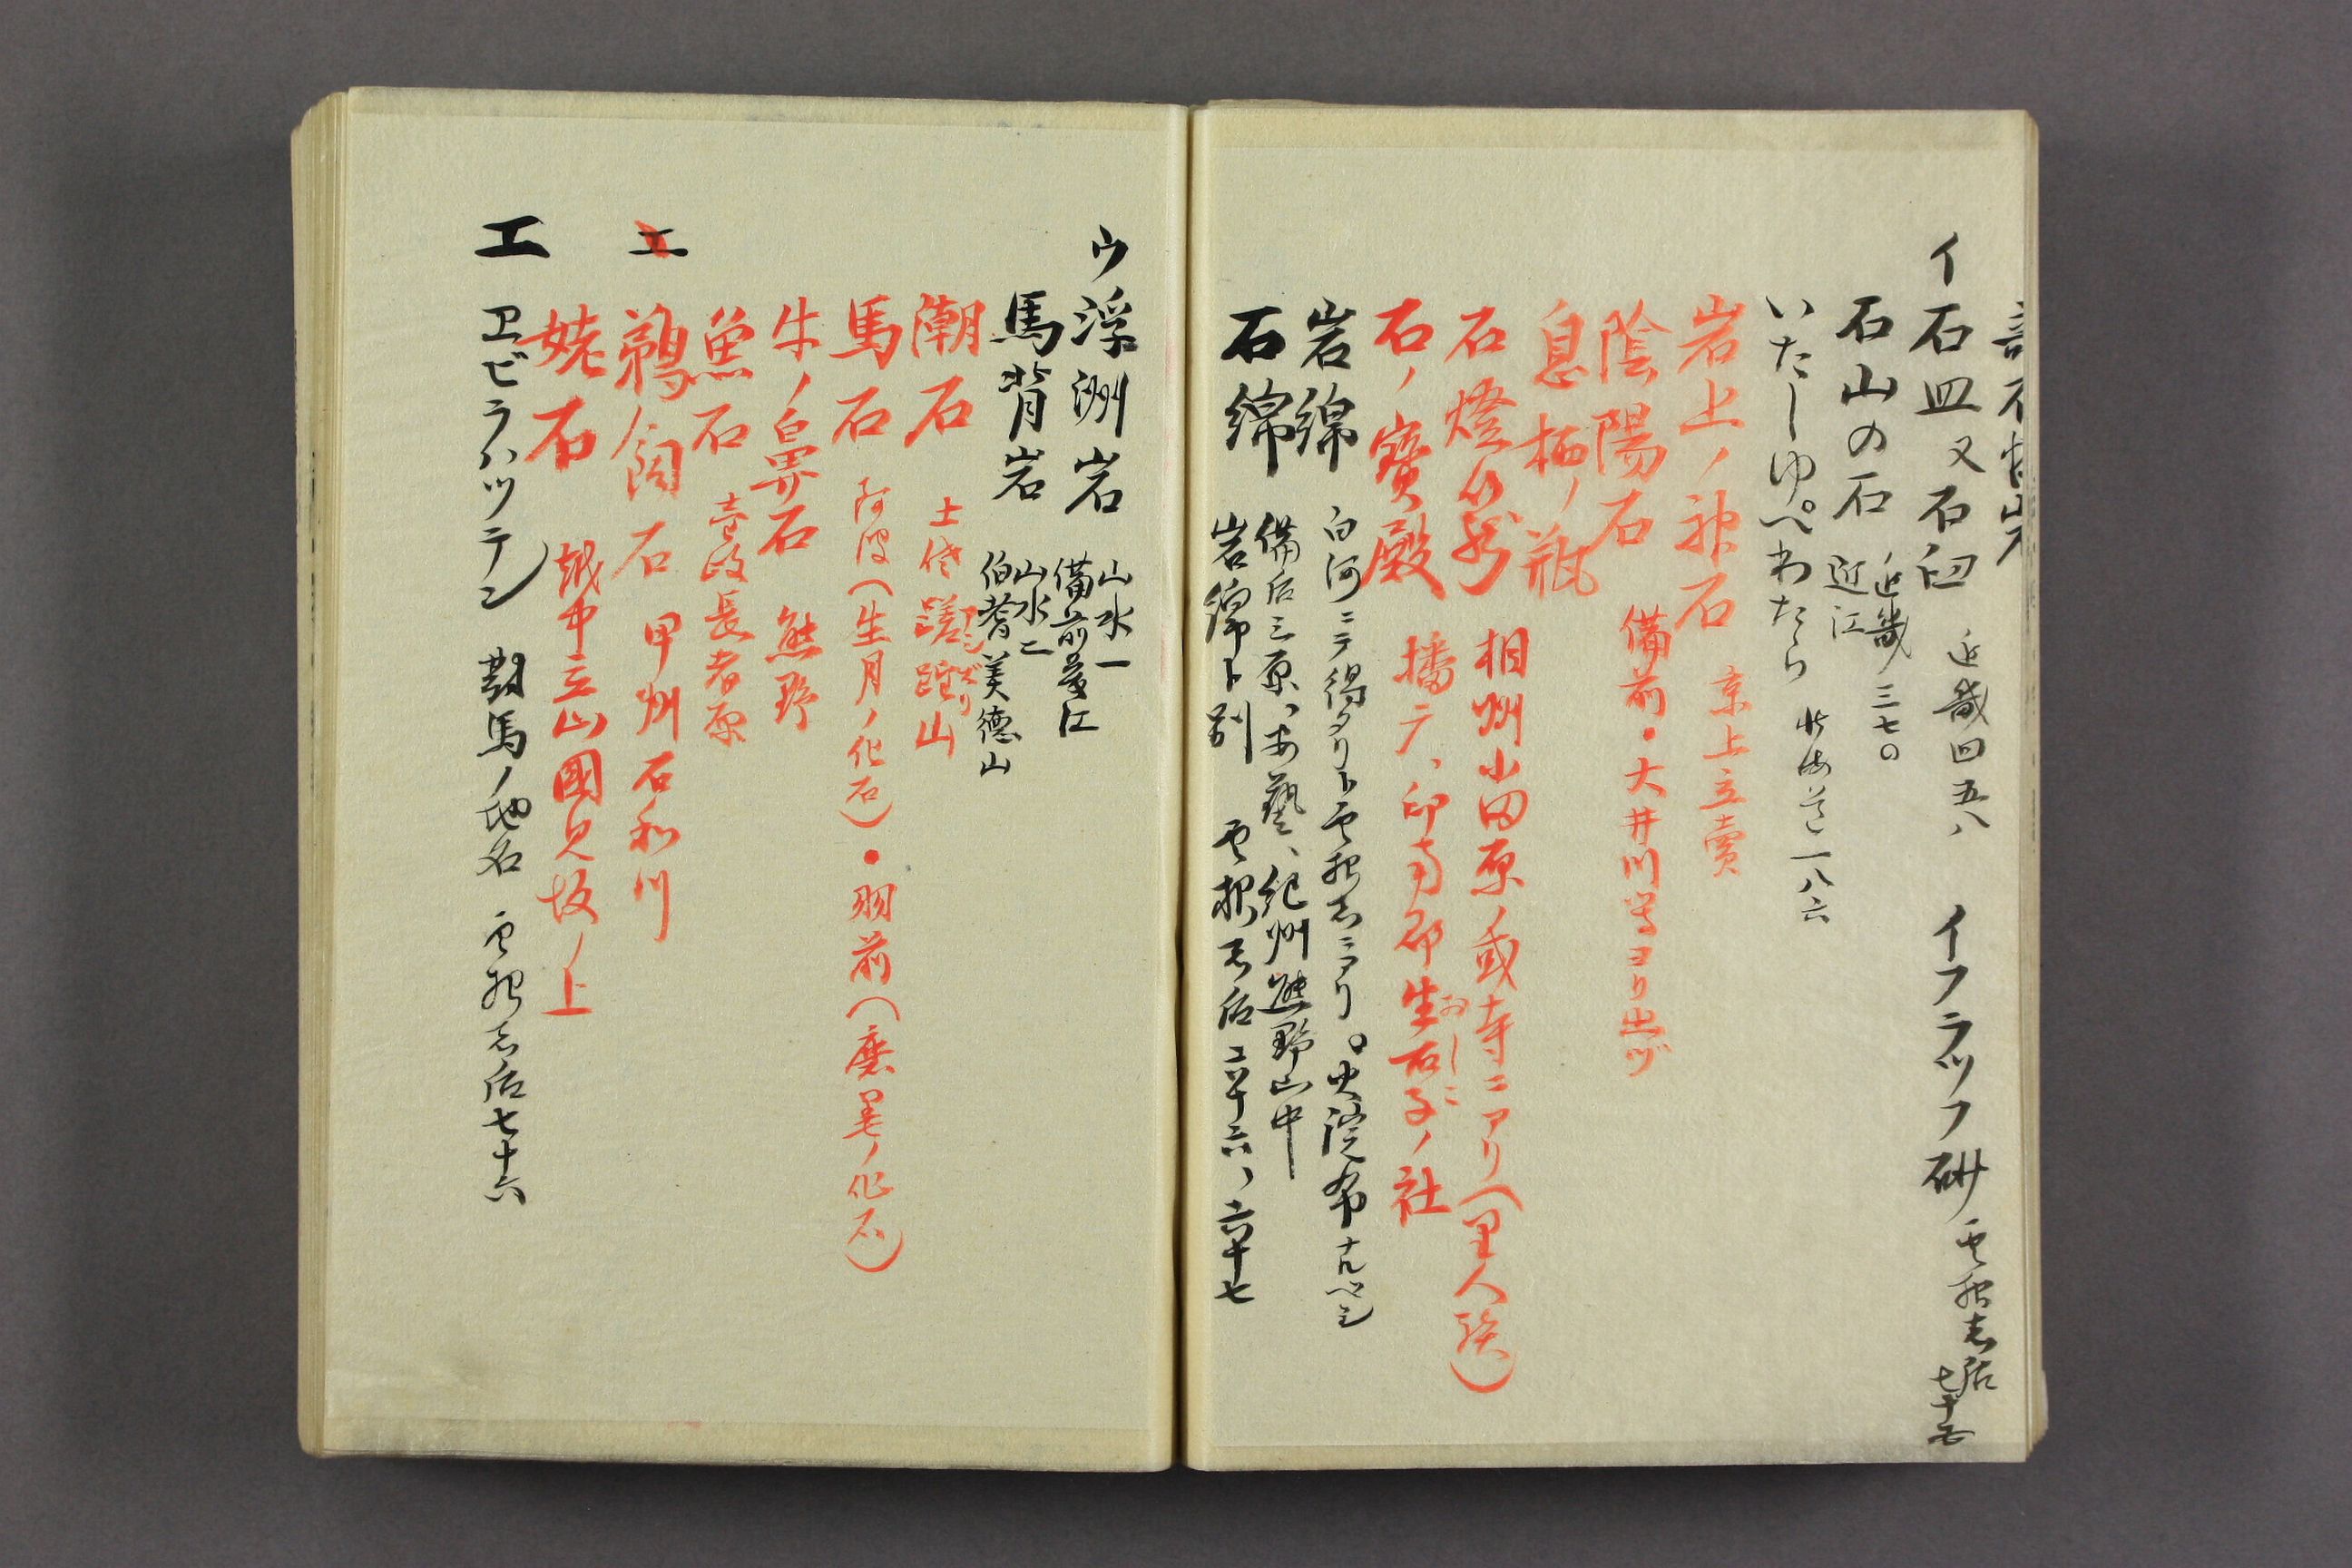 イ 石皿 又 石臼 近畿四五八 イフラツフ砂 雲根志后七十五
石山の石 近江 近畿三七〇
いたしゆべわたら 北海道一八六
岩上ノ神石 京上立賣
陰陽石 備前・大井川等ヨリ出ヅ
息栖ノ瓶
石燈籠 相州小田原ノ或寺ニアリ(里人談)
石ノ寳殿 播广、印南郡生石子ノ社
おしこ
岩綿 白河ニテ得タリト雲根志ニアリ。火浣布
備后三原、安藝、紀州熊野山中
石綿 岩綿ト別 雲根志后二ノ十六、六十七
ウ 浮洲岩 山水一 備前藻江
馬背岩 山水二 伯耆美徳山
潮石 土佐 蹉跎山
馬石 阿波(生月ノ化石)・羽前(磨墨ノ化石)
牛ノ鼻石 熊野
魚石 壹岐長者原
エ 鵜飼石 甲州石和川
姥石 越中立山國見坂ノ上
エ ヱビラハツテン 對馬ノ地名 雲根志后七十六